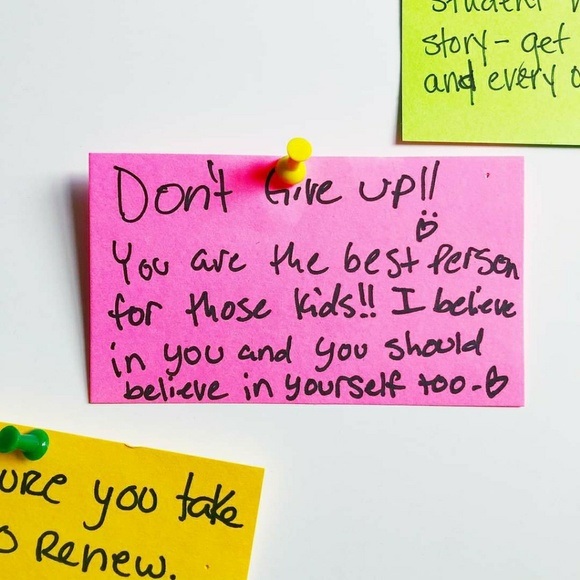 student
story- get
and every
Don't Give up!!
You are the best person
for those kids!! I believe
in you and you should
believe in yourself too-♡
you take
renew.